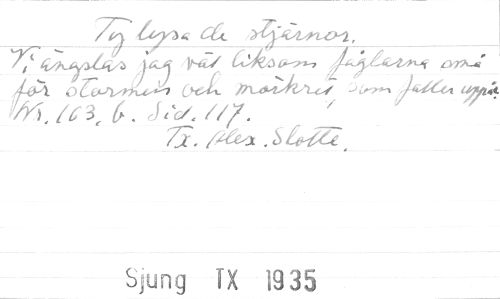 Tig lysa de stjärnor.
Vi ängslas jag vät liksom fåglarna små
för stormen och mörkret, som faller uppå.
Nr. 163, b. Sid. 117.
Tx. Alex. Slotte.
Sjung TX 1935